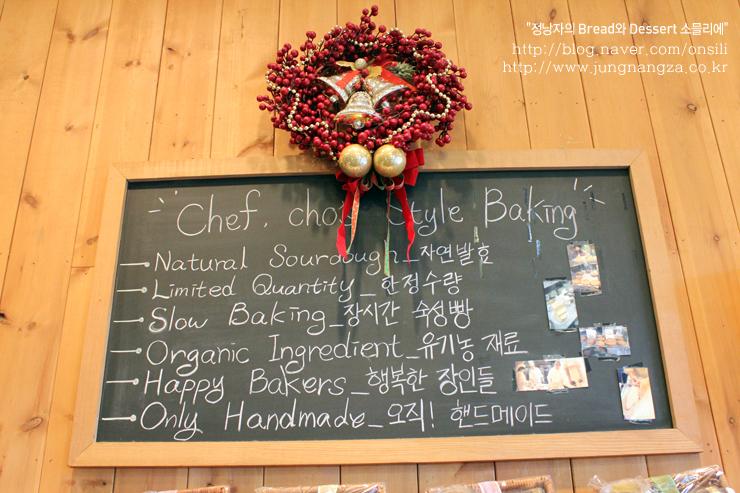 "정낭자의 Bread와 Dessert 소믈리에"
http://blog.naver.com/onsili
http://www.jungnangza.co.kr
"Chef. choi Style Baking"
Natural Sourdough_자연발효
Limited Quantity_한정수량
Slow Baking_장시간 숙성빵
Organic Ingredient_유기농 재료
Happy Bakers_행복한 장인들
Only Handmade_오직! 핸드메이드